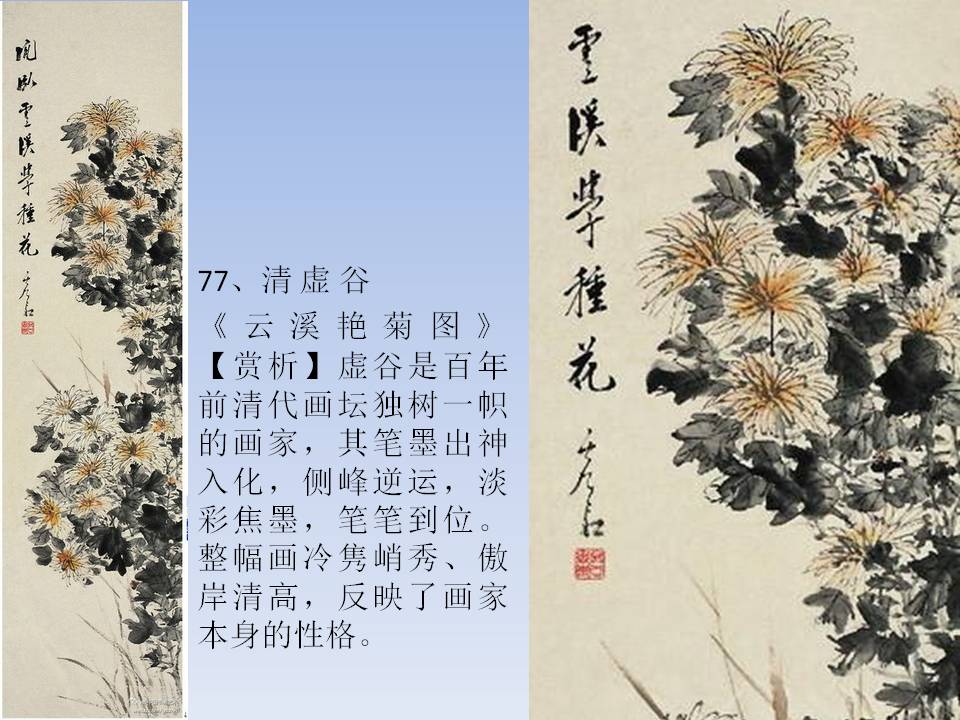 晚卧雲溪學種花
77、清虚谷
《云溪艳菊图》
【赏析】虚谷是百年
前清代画坛独树一帜
的画家，其笔墨出神
入化，侧峰逆运，淡
彩焦墨，笔笔到位。
整幅画冷隽峭秀、傲
岸清高，反映了画家
本身的性格。
雲溪學種花